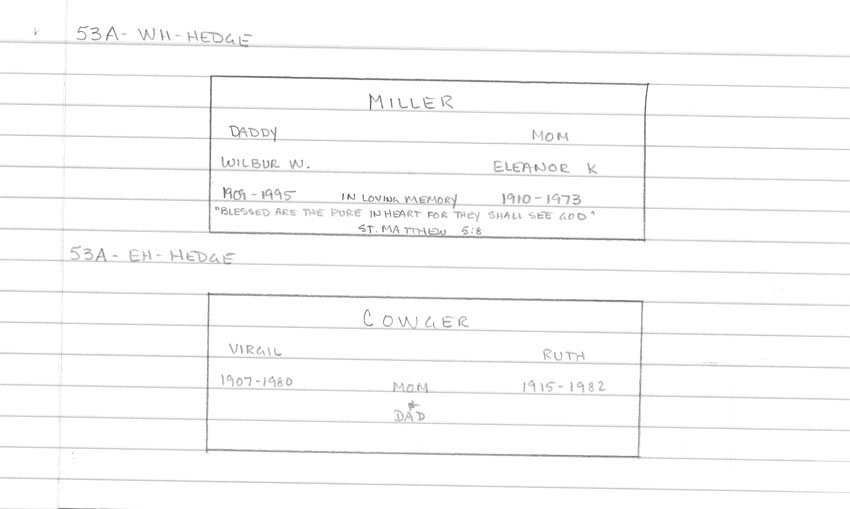 53A- WH-HEDGE
MILLER
DADDY MOM
WILBUR W. ELEANOR K
1909-1995 IN LOVING MEMORY 1910-1973
"BLESSED ARE THE PURE IN HEART FOR THEY SHALL SEE GOD"
ST. MATTHEW 5:8
53A- EH-HEDGE
COWGER
VIRGIL RUTH
1907-1980 MOM 1915-1982
&
DAD